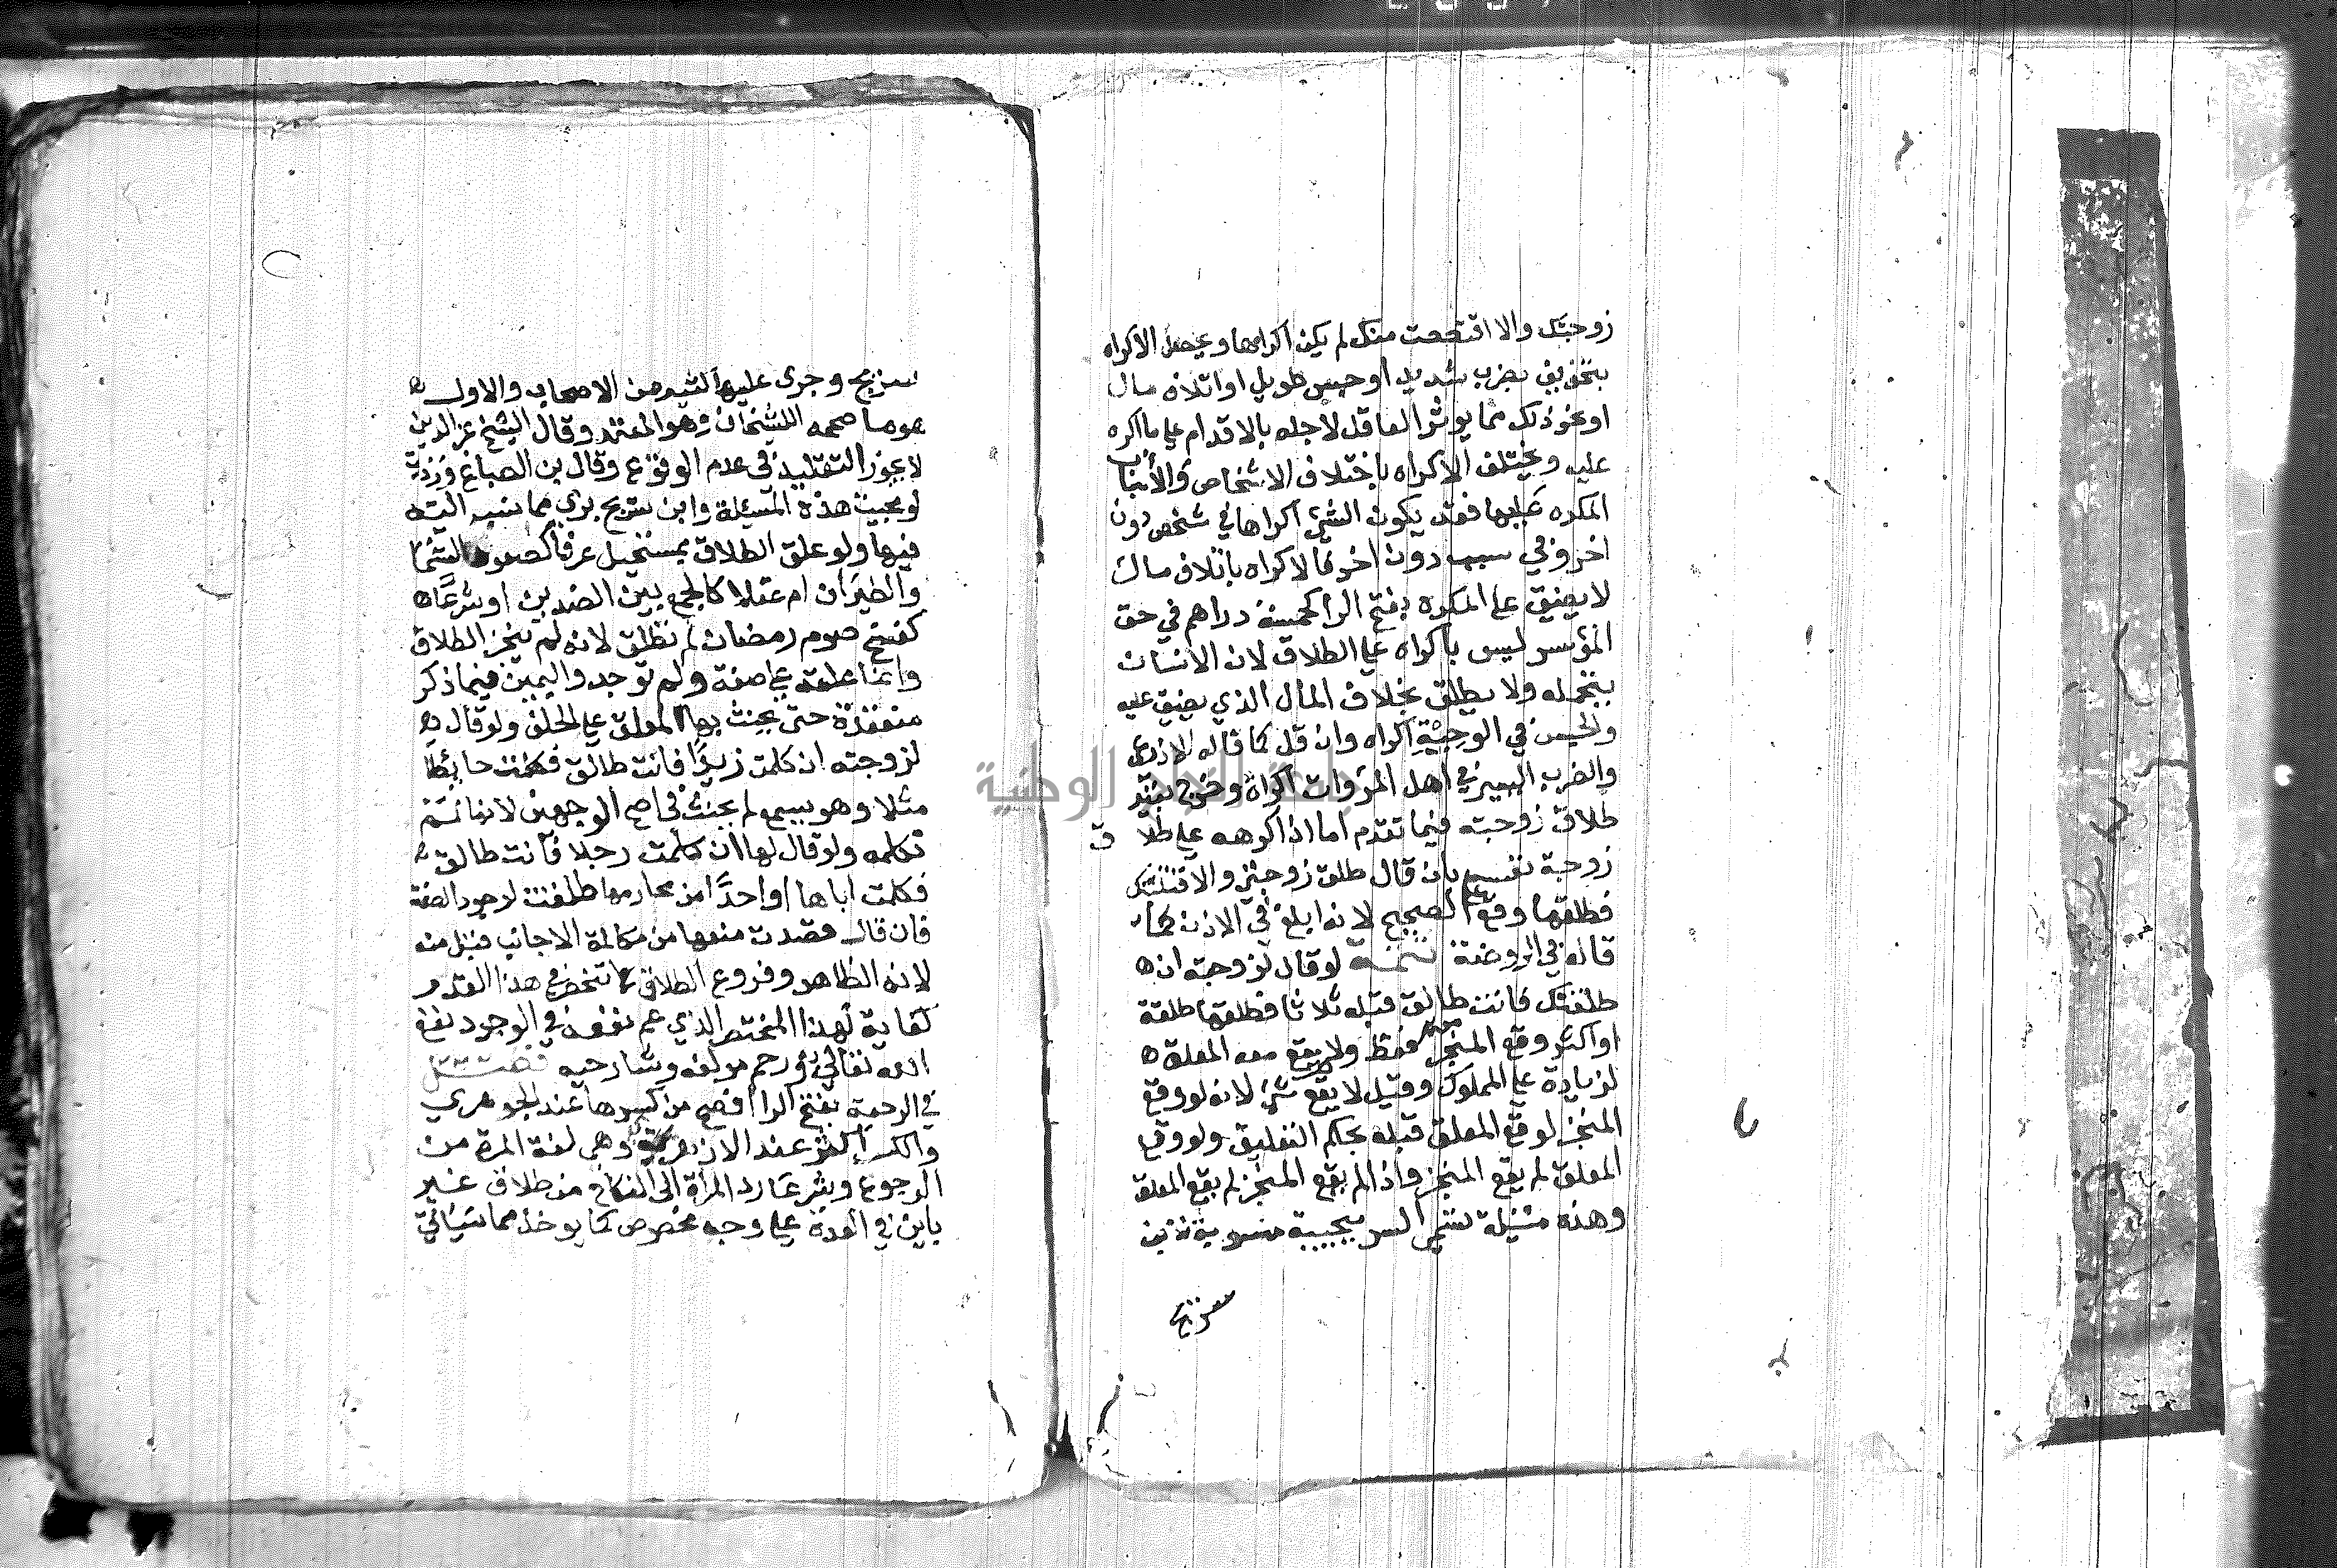 زوجتك والا اقتصصت منك لم يكن اكراها ويحصل الاكراه
بتخويف بضرب شديد او حبس طويل او اتلاف مال
او نحو ذلك مما يوثر العاقل لاجله بالاقدام على ما اكره
عليه ويختلف الاكراه باختلاف الاشخاص والأسباب
المكره عليها فقد يكون الشي اكراها في شخص دون
اخر وفي سبب دون اخر فالاكراه باتلاف مال
لا يضيق على المكره بفتح الرا كخمسة دراهم في حق
المؤسر ليس باكراه على الطلاق لان الانسان
يتحمله ولا يطلق بخلاف المال الذي يضيق عليه
والحبس في الوجيه اكراه وان قل كما قاله الاذرعي
والضرب اليسير في اهل المروات اكراه وخرج بقيد
طلاق زوجته فيما تقدم اما اذا اكرهه على طلا ق
زوجة نفسه بان قال طلق زوجتي والا قتلتك
فطلقها وقع على الصحيح لانه ابلغ في الاذن كما
قاله في الروضة تتمـــة لو قال لزوجته ان
طلقتك فانت طالق قبله ثلاثا فطلقها طلقة
او اكثر وقع المنجز فقط ولا يقع معه المعلق
لزيادة على المملوك وقيل لا يقع شي لانه لو وقع
المنجز لوقع المعلق قبله بحكم التعليق ولو وقع
المعلق لم يقع المنجز واذا لم يقع المنجز لم يقع المعلق
وهذه مسئيلة تسمى السريجيية منسوبة لابن
سريج
سريج وجرى عليها كثير من الاصحاب والاول
هو ما صححه الشيخان وهو المعتمد وقال الشيخ عز الدين
لا يجوز التقليد في عدم الوقوع وقال بن الصباغ وددت
لو محيت هذه المسئيلة وابن سريج بري مما نسب اليه
فيها ولو علق الطلاق بمستحيل عرفا كصعود السما
والطيران ام عقلا كالجمع بين الضدين او شرعا
كفسخ صوم رمضان لم تطلق لانه لم ينجز الطلاق
وانما علقه على صفة ولم توجد واليمين فيما ذكر
منعقدة حتى يحنث بها المعلق على الحلف ولو قال
لزوجته ان كلمت زيدا فانت طالق فكلمت حايطا
مثلا وهو يسمع لم يحنث في اصح الوجهين لانها لم
تكلمه ولو قال لها ان كلمت رجلا فأنت طالق
فكلمت اباها او احدا من محارمها طلقت لوجود الصفة
فان قال قصدت منعها من مكالمة الاجانب قبل منه
لانه الظاهر وفروع الطلاق لا تنحصر في هذا القدر
كفاية لهذا المختصر الذي عم نفعه في الوجود نفع
الله تعالى به ورحم مولفه وشارحيه فصـــل
في الرجعة بفتح الرا افصح من كسرها عند الجوهري
والكسر اكثر عند الازهري وهي لغة المرة من
الرجوع وشرعا رد المرأة الى النكاح من طلاق غير
باين في العدة على وجه مخصوص كما يوخذ مما سيأتي